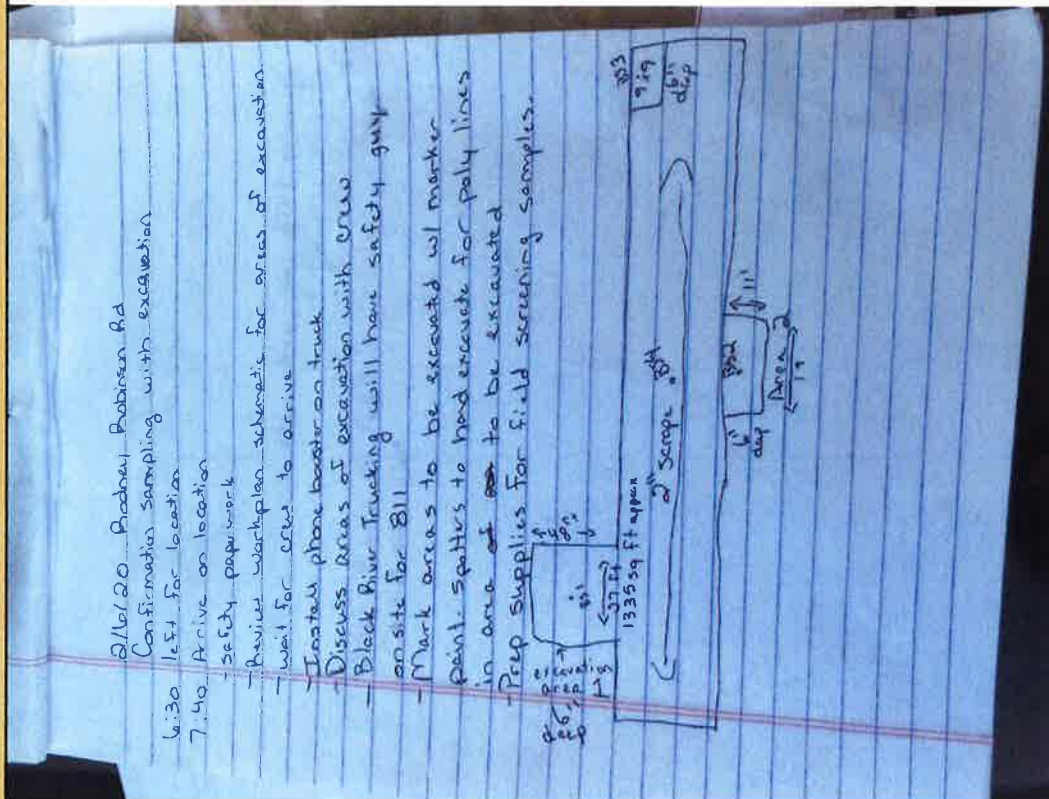 2/6/20 Rodney Robinson Rd
Confirmation sampling with excavation
6:30 left for location
7:40 Arrive on location
- safety paperwork
- Review workplan schematic for areas of excavation.
- wait for crew to arrive
- Install phone booster on truck
- Discuss areas of excavation with crew
- Black River Trucking will have safety guy
on site for 811
- Mark areas to be excavated w/ marker
paint. Spotters to hand excavate for poly lines
in area to be excavated
- Prep supplies for field screening samples.
BS1
27 ft
1335 sq ft appen
BS3
9x9
6" deep
2" scrape BS4
6" deep
BS2
11'
Area 2
19